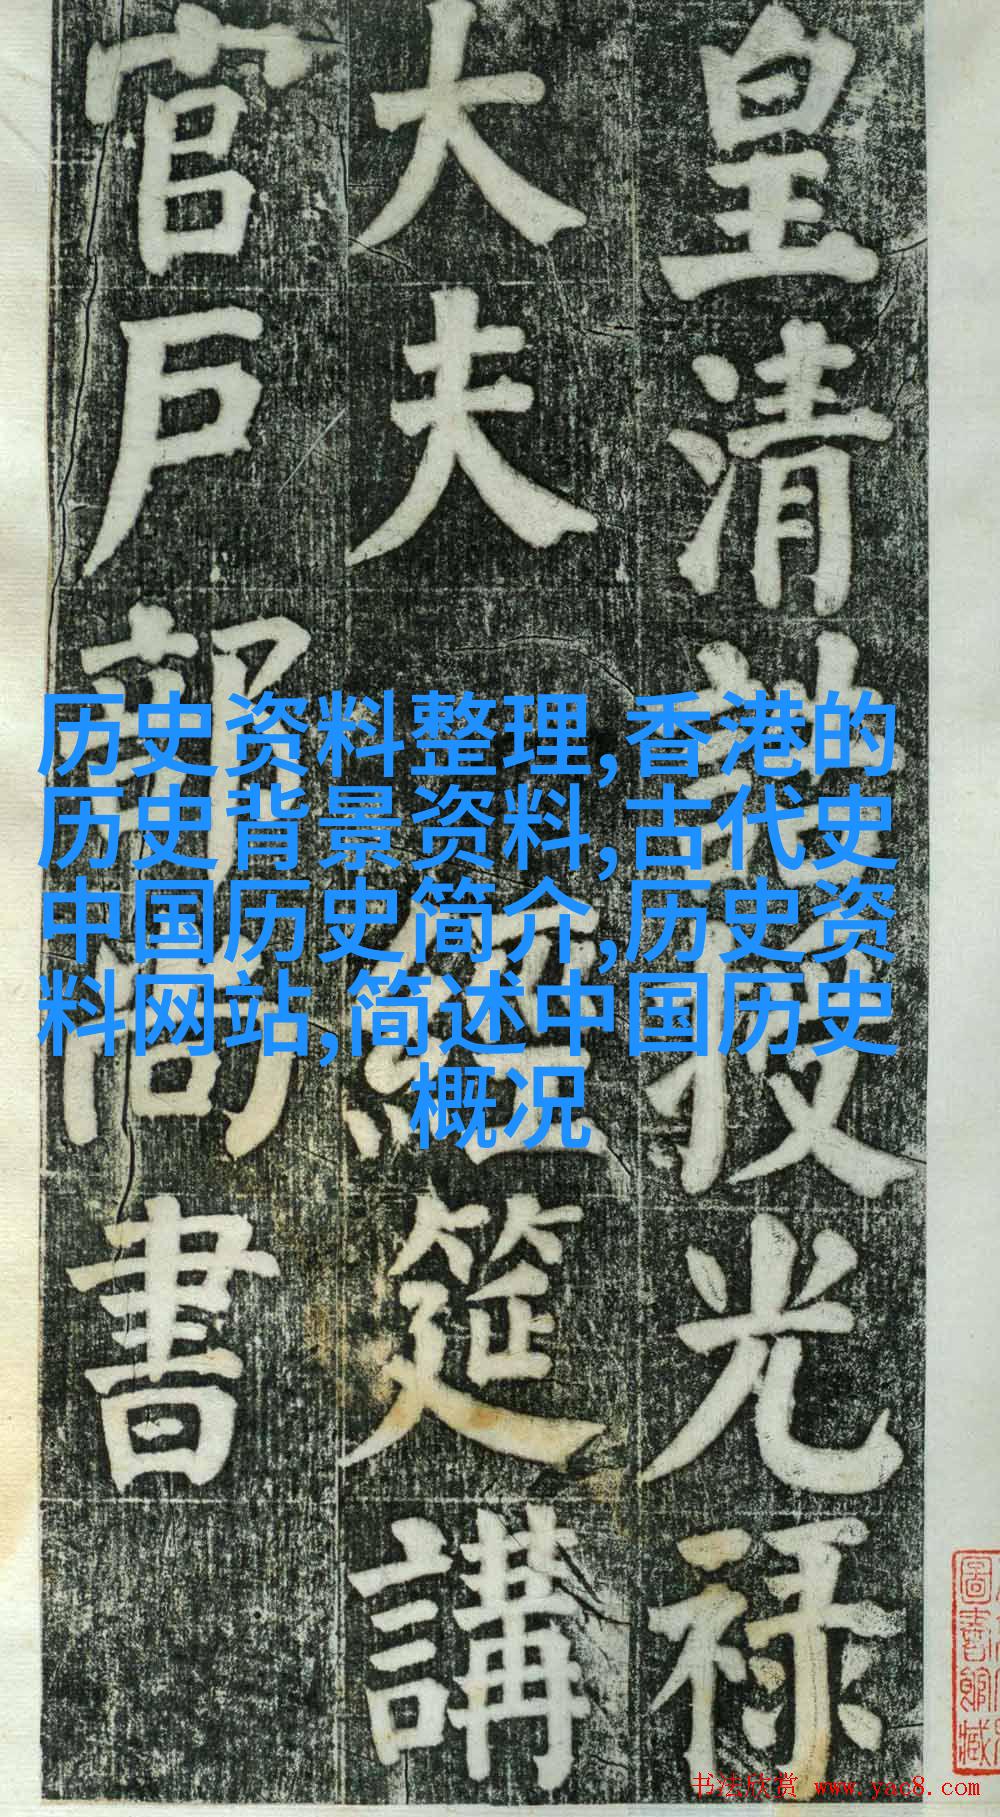 皇清誥授光禄
大夫經筵講
官戶部尚書
历史资料整理,香港的
历史背景资料,古代史
中国历史简介,历史资
料网站,简述中国历史
概况
圖書館藏
书法欣赏 www.yac8.com